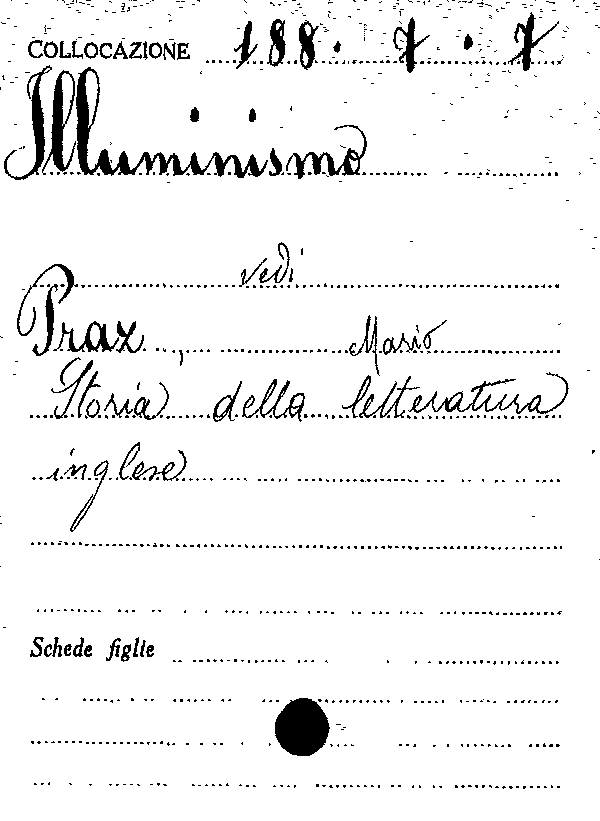 COLLOCAZIONE 188. 7. 7
Illuminismo
vedi
Praz, Mario
Storia della letteratura
inglese
Schede figlie